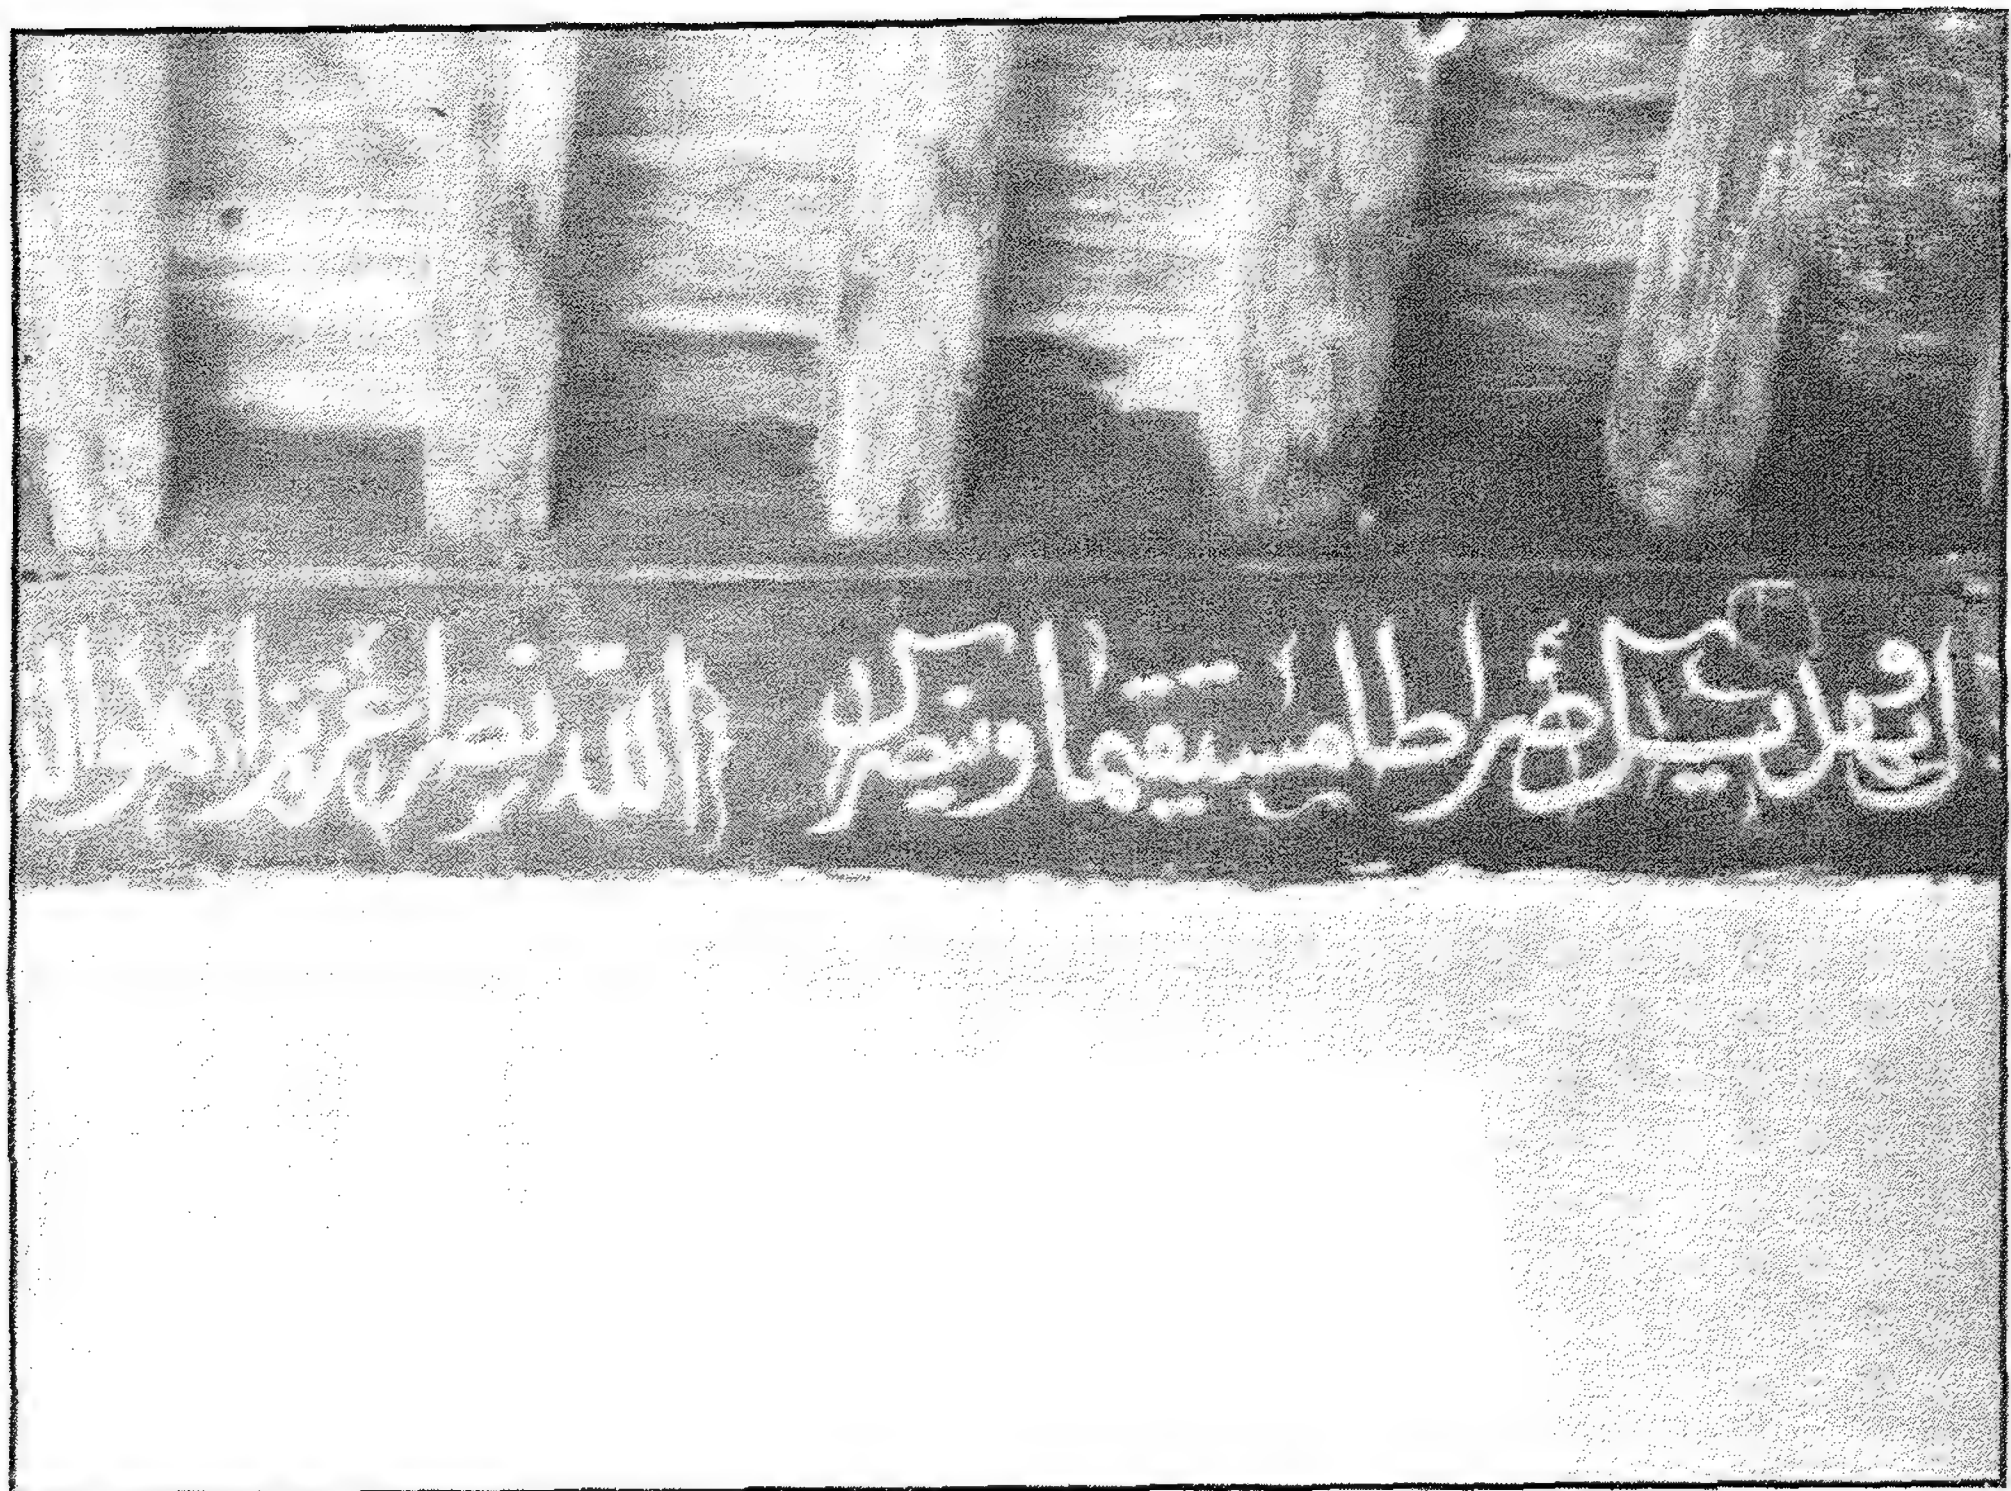 ويهديك صراطا مستقيما وينصرك الله نصرا عزيزا هو الذ